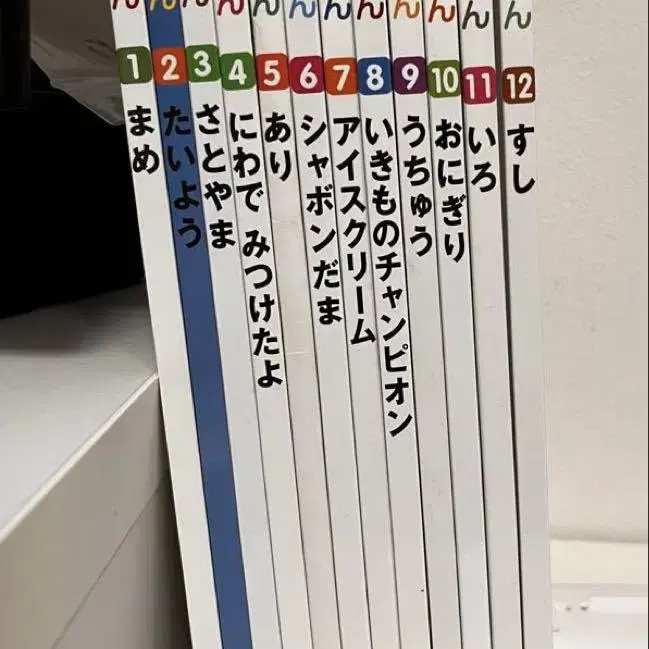 ん
1
まめ
ん
2
たいよう
ん
3
さとやま
ん
4
にわで みつけたよ
ん
5
あり
ん
6
シャボンだま
ん
7
アイスクリーム
ん
8
いきものチャンピオン
ん
9
うちゅう
ん
10
おにぎり
ん
11
いろ
ん
12
すし